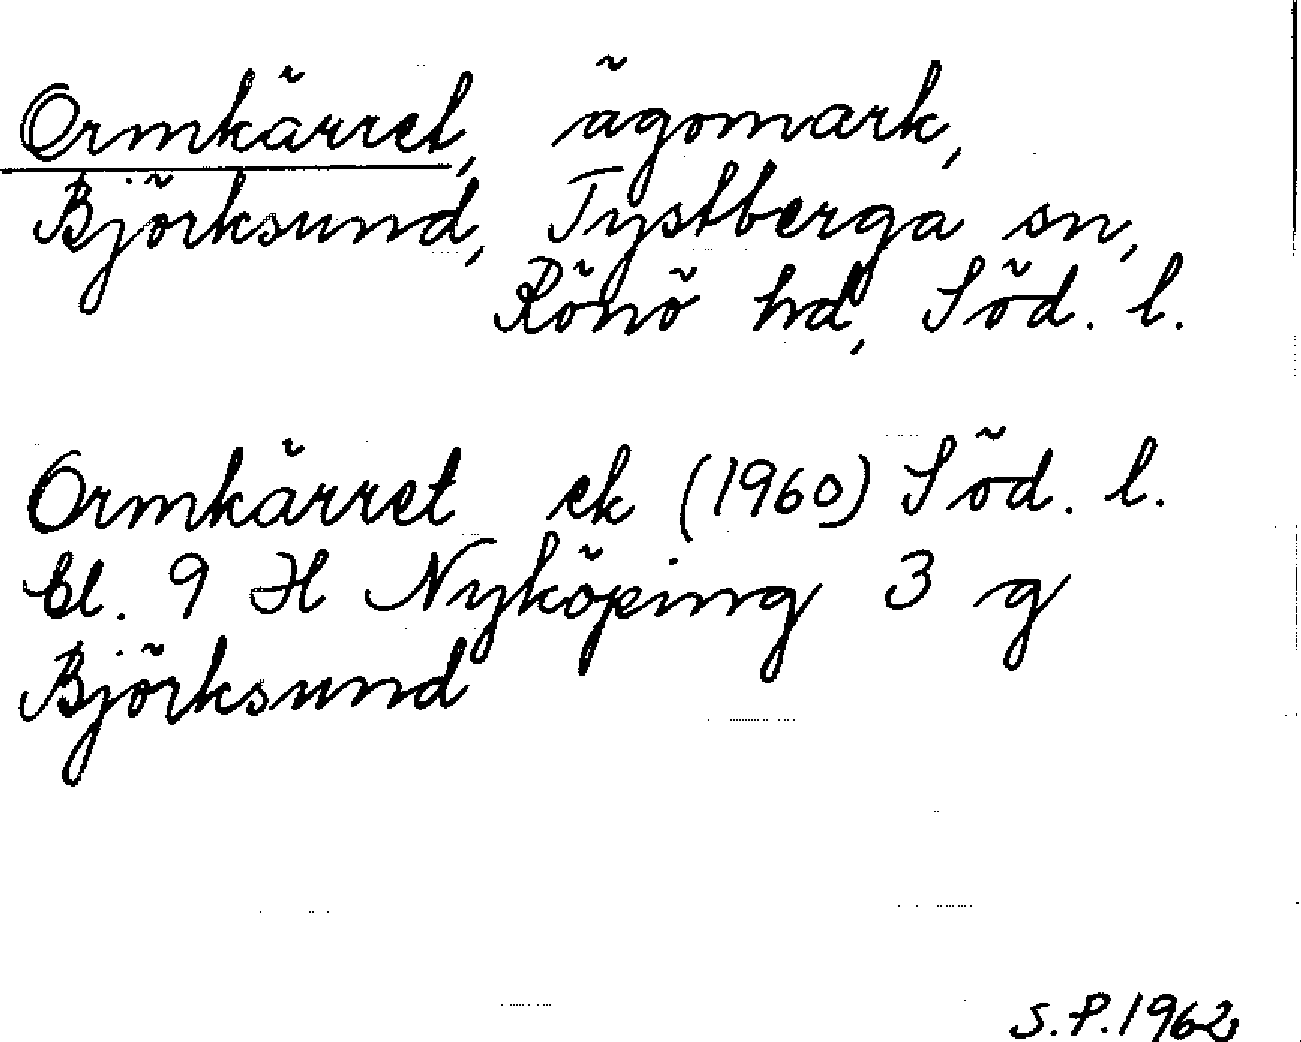 Ormkärret, ägomark,
Björksund, Tystberga sn,
Rönö hd, Söd. l.
Ormkärret ek (1960) Söd. l.
bl. 9 H Nyköping 3 g
Björksund
S.P. 1962